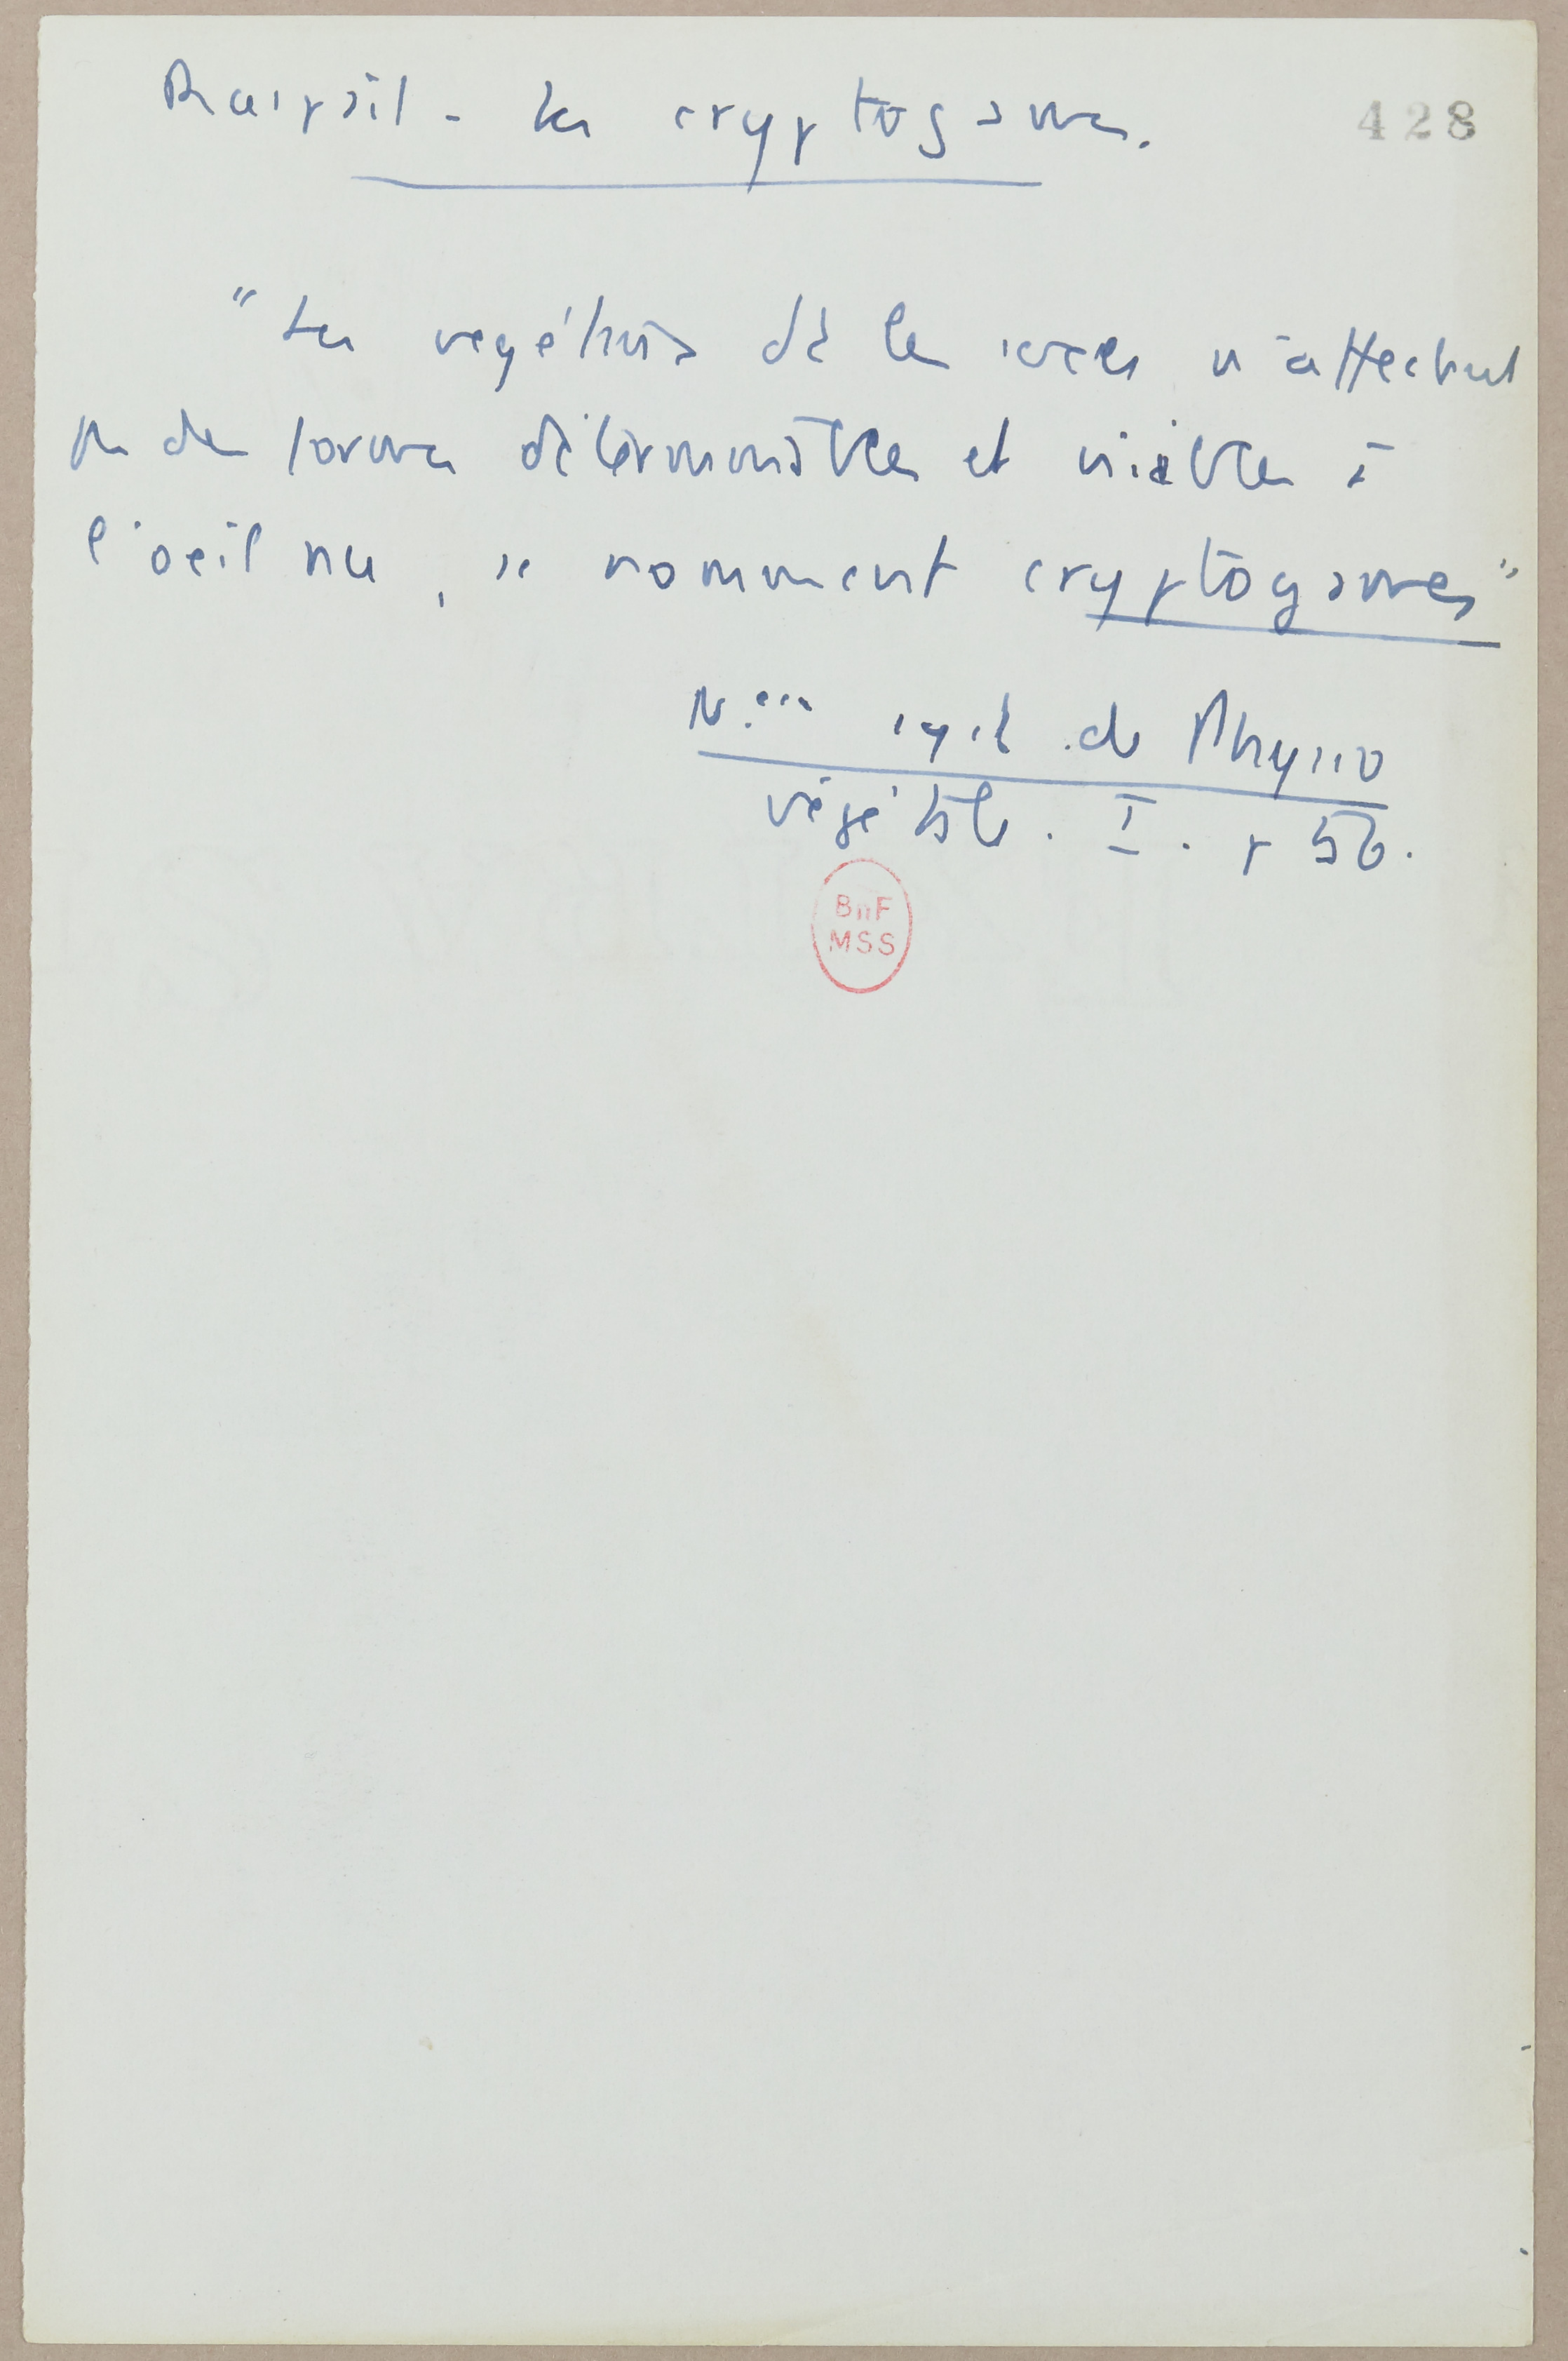 Raspail - Les cryptogames.
428
"Les végétaux dt les sexes n'affectent
pas des formes déterminables et visibles à
l'oeil nu, se nomment cryptogames"
N.eau syst de Physio
végétale. I. p 56.
BnF
MSS